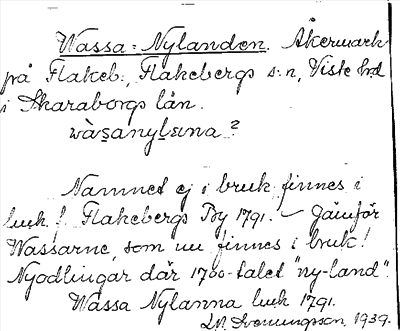 Wassa = Nylanden. Åkermark
på Flakeb:, Flakebergs s:n, Viste hrd
i Skaraborgs län.
wàs̱anyḻɛna ?
Namnet ej i bruk finnes i
luk. f. Flakebergs By 1791. – Jämför
Wassarne, som nu finnes i bruk!
Nyodlingar där 1700-talet "ny-land".
Wassa Nylanna luk 1791.
1939.